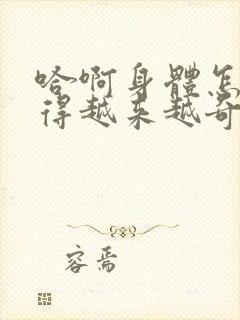 哈啊身體怎
得越来越奇
容焉